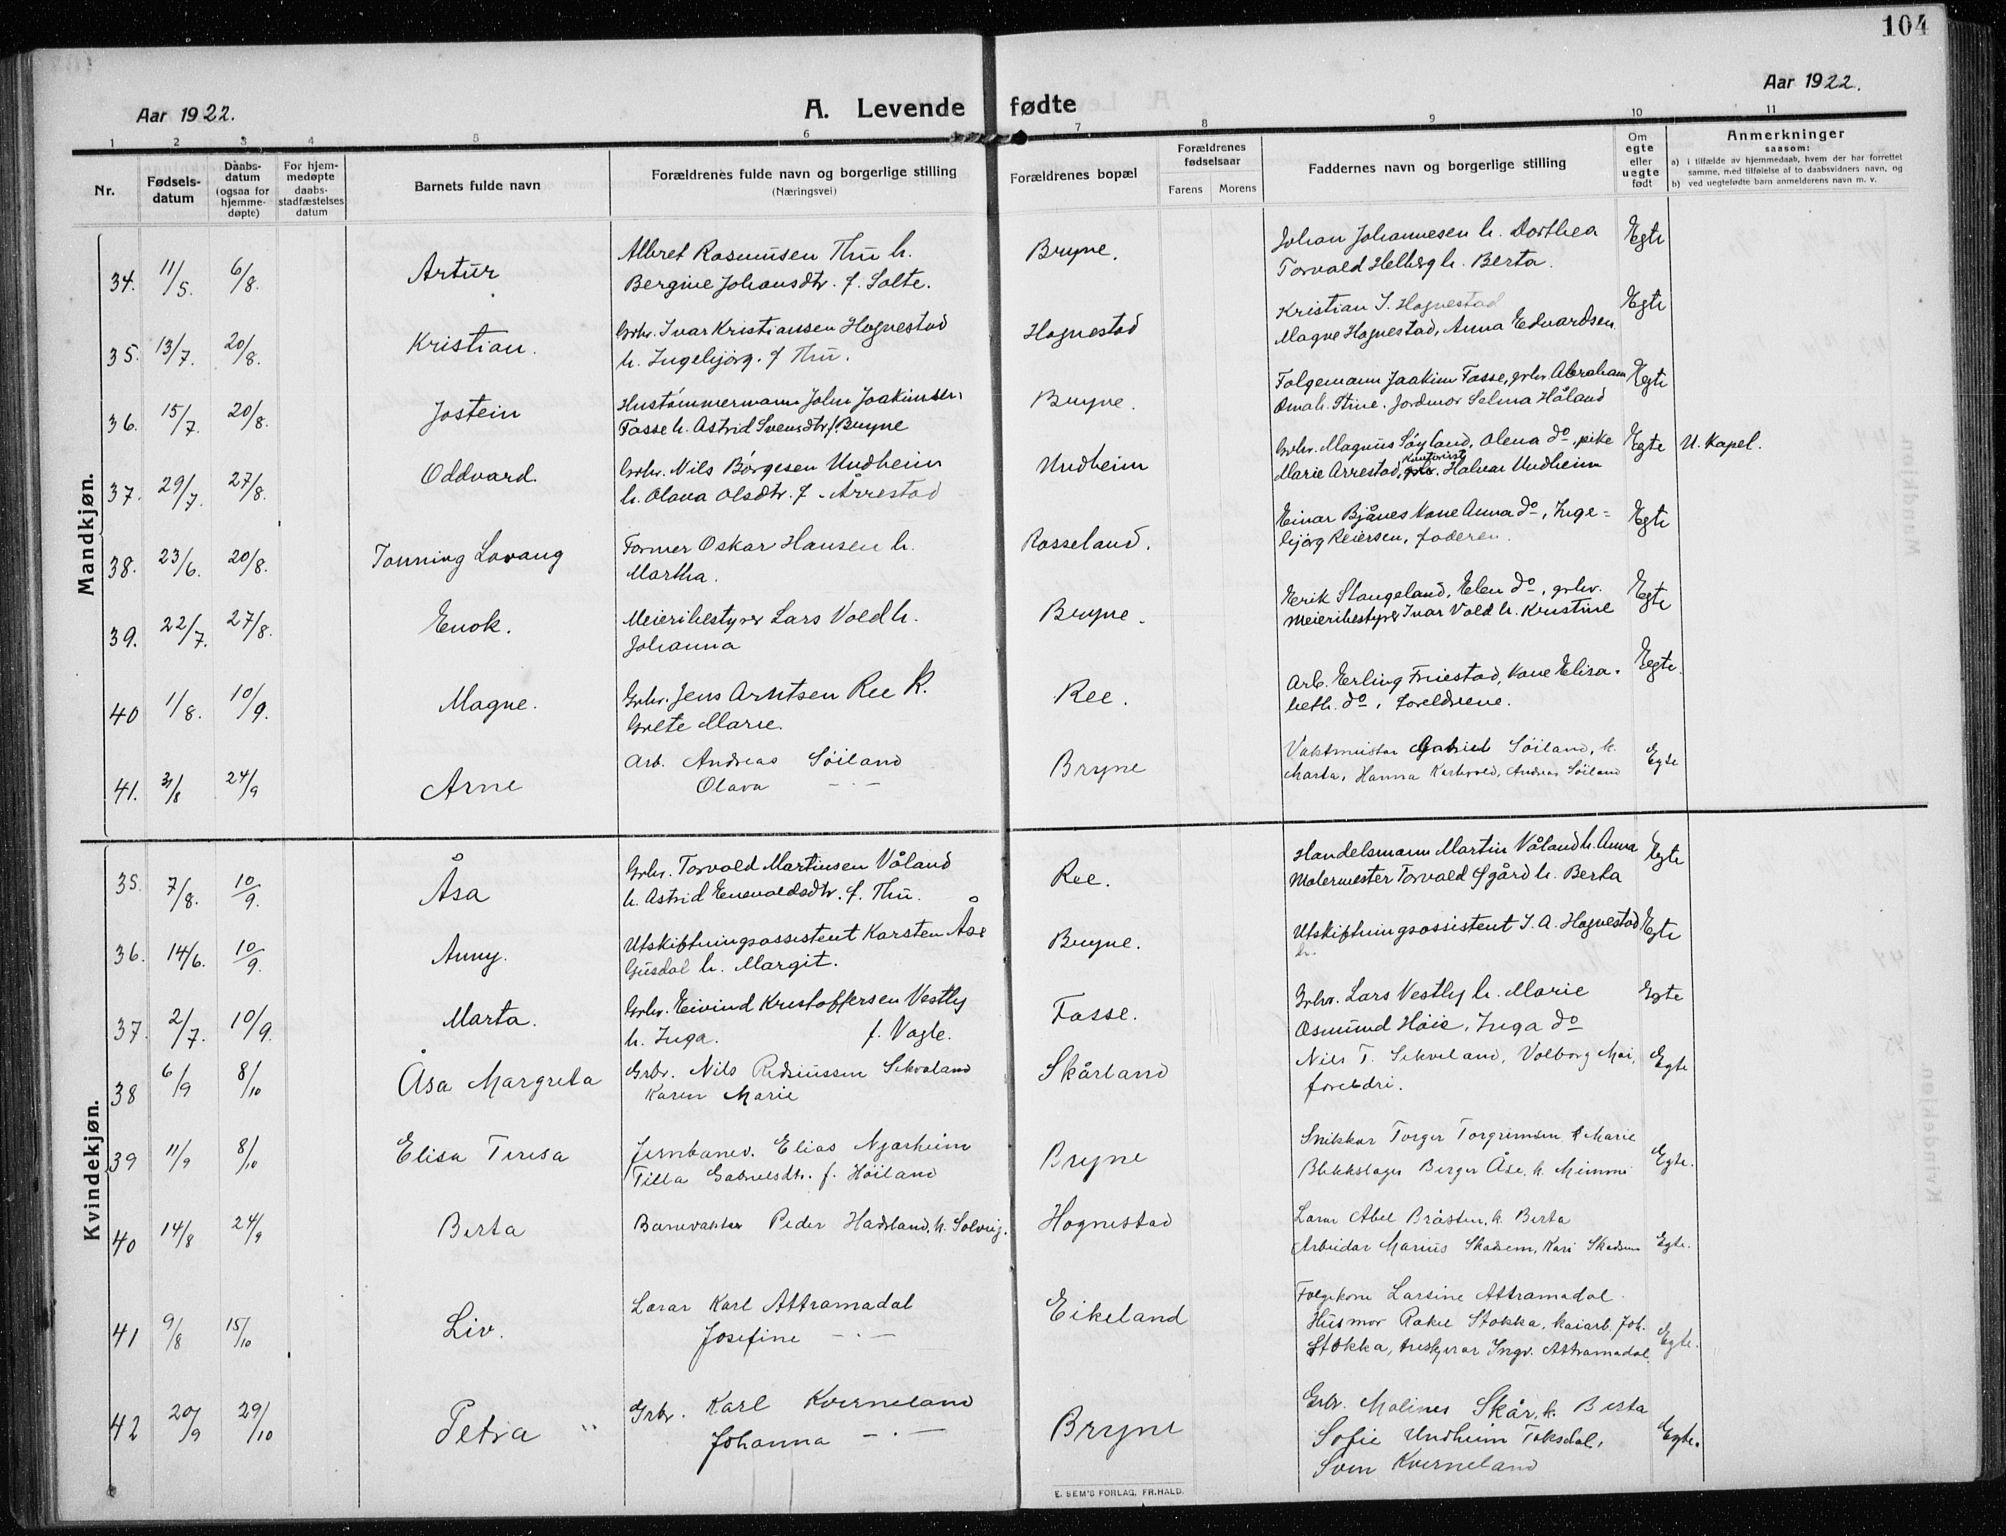 104
Aar 1922.
A. Levende fødte
Aar 1922.
1 2 3 4 5 6 7 8 9 10 11
Nr.
Fødsels-
datum
Daabs-
datum
(ogsaa for
hjemme-
døpte)
For hjem-
medøpte
daabs-
stadfæstelses
datum
Barnets fulde navn
Forældrenes fulde navn og borgerlige stilling
(Næringsvei)
Forældrenes bopæl
Forældrenes
fødselsaar
Farens Morens
Faddernes navn og borgerlige stilling
Om
egte
eller
uegte
født
Anmerkninger
saasom:
a) i tilfælde av hjemmedaab, hvem der har forrettet
samme, med tilføielse af to daabsvidners navn, og
b) ved uegtefødte barn anmelderens navn m. v.
Mandkjøn.
34. 11/5. 6/8. Artur
Albret Rasmusen Thu h.
Bergine Johansdtr. f. Salte.
Bryne.
Johan Johannesen h. Dorthea
Torvald Helberg h. Berta.
Egte
35. 13/7. 20/8. Kristian.
Grbr. Ivar Kristiansen Hognestad
h. Ingebjørg. f Thu.
Hognestad
Kristian I. Hognestad
Magne Hognestad, Anna Edvardsen
Egte
36. 15/7. 20/8. Jostein
Hustømmermann John Joakimsen
Fosse h. Astrid Svensdtr f. Bryne
Bryne.
Folgemann Joakim Fosse, grbr Abraham
Oma h. Stine. Jordmor Selma Håland
Egte
37. 29/7. 27/8. Oddvard.
Grbr. Nils Børgesen Undheim
h. Olava Olsdtr. f. Årrestad
Undheim
Grbr. Magnus Søyland, Olena do, pike
Marie Arrestad, kontorist Halvar Undheim
Egte
U. Kapel.
38. 23/6. 20/8. Tonning Lovang
Former Oskar Hansen h.
Martha.
Rosseland.
Einar Bjånes Kone Anna do, Inge=
bjørg Reiersen, faderen.
Egte
39. 22/7. 27/8. Enok.
Meieribestyrer Lars Vold h.
Johanna
Bryne.
Erik Stangeland, Elen do, grbr.
Meieribestyrer Ivar Vold h. Kristine
Egte
40 1/8. 10/9. Magne.
Grbr. Jens Arntsen Ree k.
Grete Marie.
Ree.
Arb. Erling Friestad, Kone Elisa-
beth. do, foreldrene.
Egte.
41. 31/8 24/9 Arne
Arb. Andreas Søiland
Olava -·-
Bryne
Vaktmester Gabriel Søiland, k.
Marta, Hanna Karlsvold, Andreas Søiland
Egte
Kvindekjøn.
35. 7/8. 10/9. Åsa
Grbr. Torvald Martinsen Våland
h. Astrid Enevoldsdtr. f. Thu.
Ree.
Handelsmann Martin Våland h. Anna
Malermester Torvald Øgård h. Berta
Egte
36. 14/6. 10/9. Anny.
Utskiftningsassistent Karsten Åse
Gusdal h. Margit.
Bryne.
Utskiftningsassistent I. A. Hognestad
h.
Egte
37. 2/7. 10/9. Marta.
Grbr. Eivind Kristoffersen Vestly
h. Inga. f. Vagle.
Fosse.
Grbr. Lars Vestly h. Marie
Osmund Høie, Inga do
Egte
38 6/9 8/10 Åsa Margreta
Grbr. Nils Rasmussen Sikvaland
Karen Marie
Skårland
Nils T. Sikveland, Volborg Moi,
foreldri.
Egte
39 11/9 8/10 Elisa Teresa
Jernbanev. Elias Njærheim
Tilla Gabrielsdtr. f. Høiland
Bryne
Snikkar Torger Torgrimsen k Marie
Blikkslager Berger Åse, k. Mimmi
Egte.
40 14/8 24/9 Berta
Banevakter Peder Hadland, k. Solveig.
Hognestad
Lærar Abel Bråstein, k. Berta
Arbeidar Marius Skadsem, Kari Skadsem
Egte.
41 9/8 15/10 Liv.
Lærar Karl Attramadal
Josefine -·-
Eikeland
Folgekone Larsine Attramadal
Husmor Rakel Stokka, kaiarb. Joh.
Stokka, treskjerar Ingv. Attramadal.
Egte.
42 20/9 29/10 Petra
Grbr. Karl Kverneland
Johanna -·-
Bryne
Grbr. Malines Skår, k. Berta
Sofie Undheim Toksdal,
Sven Kverneland
Egte.
E. SEM'S FORLAG, FR.HALD.